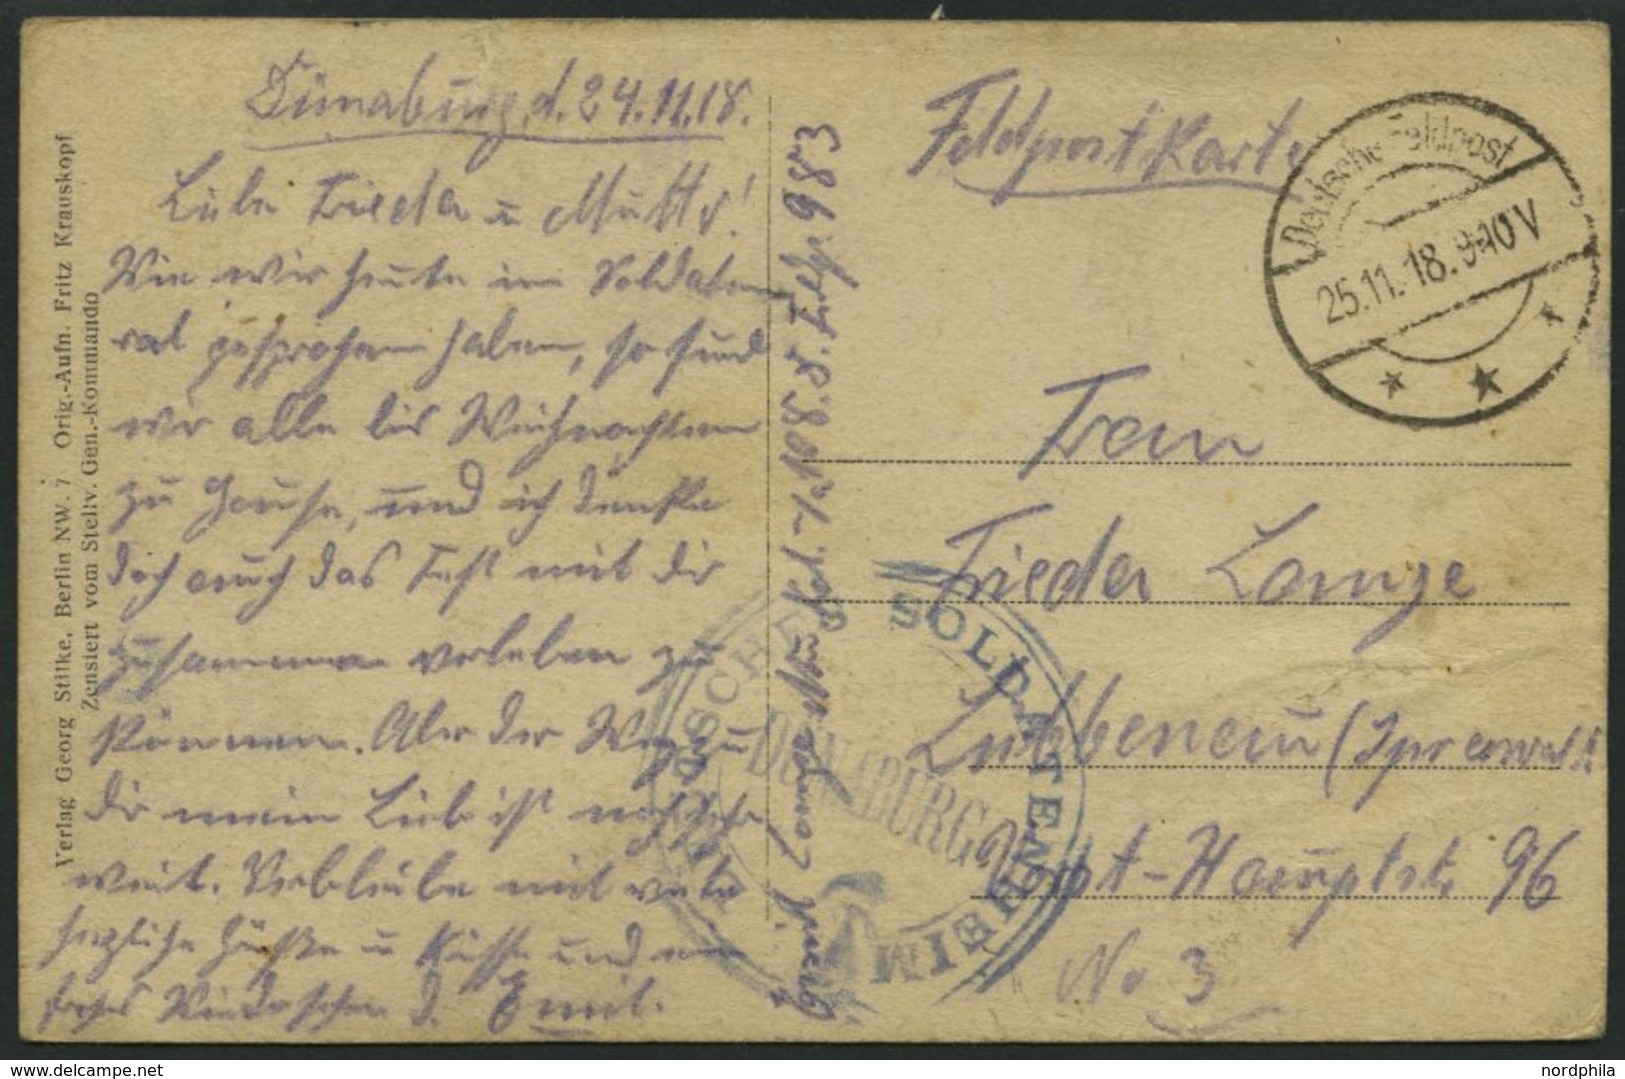 Dünaburg, d. 24.11.18.
Liebe Frieda u Mutter!
Wie wir heute im Soldaten
rat gesprochen haben, so sind
wir alle bis Weihnachten
zu Hause, und ich denke
doch auch das Fest mit dir
zusammen verleben zu
können. Aber der Weg zu
dir mein Lieb ist noch sehr
weit. Verbleibe mit viele
herzliche Grüße u Küsse und ein
frohes Wiedersehen d. Emil.
Verlag Georg Stilke, Berlin NW. 7 Orig.-Aufn. Fritz Krauskopf
Zensiert vom Stellv. Gen.-Kommando
983
Feldpostkarte
Deutsche Feldpost
25.11.18. 9-10V
Frau
Frieda Lange
Lübbenau (Spreewald)
-Hauptstr. 96
No 3
SOLDATENHEIM
DÜNABURG